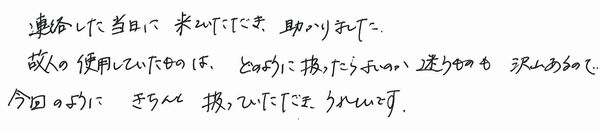 連絡した当日に来ていただき、助かりました。
故人の使用していたものは、どのように扱ったらよいのか迷うものも沢山あるので
今回のように きちんと 扱っていただき、うれしいです。